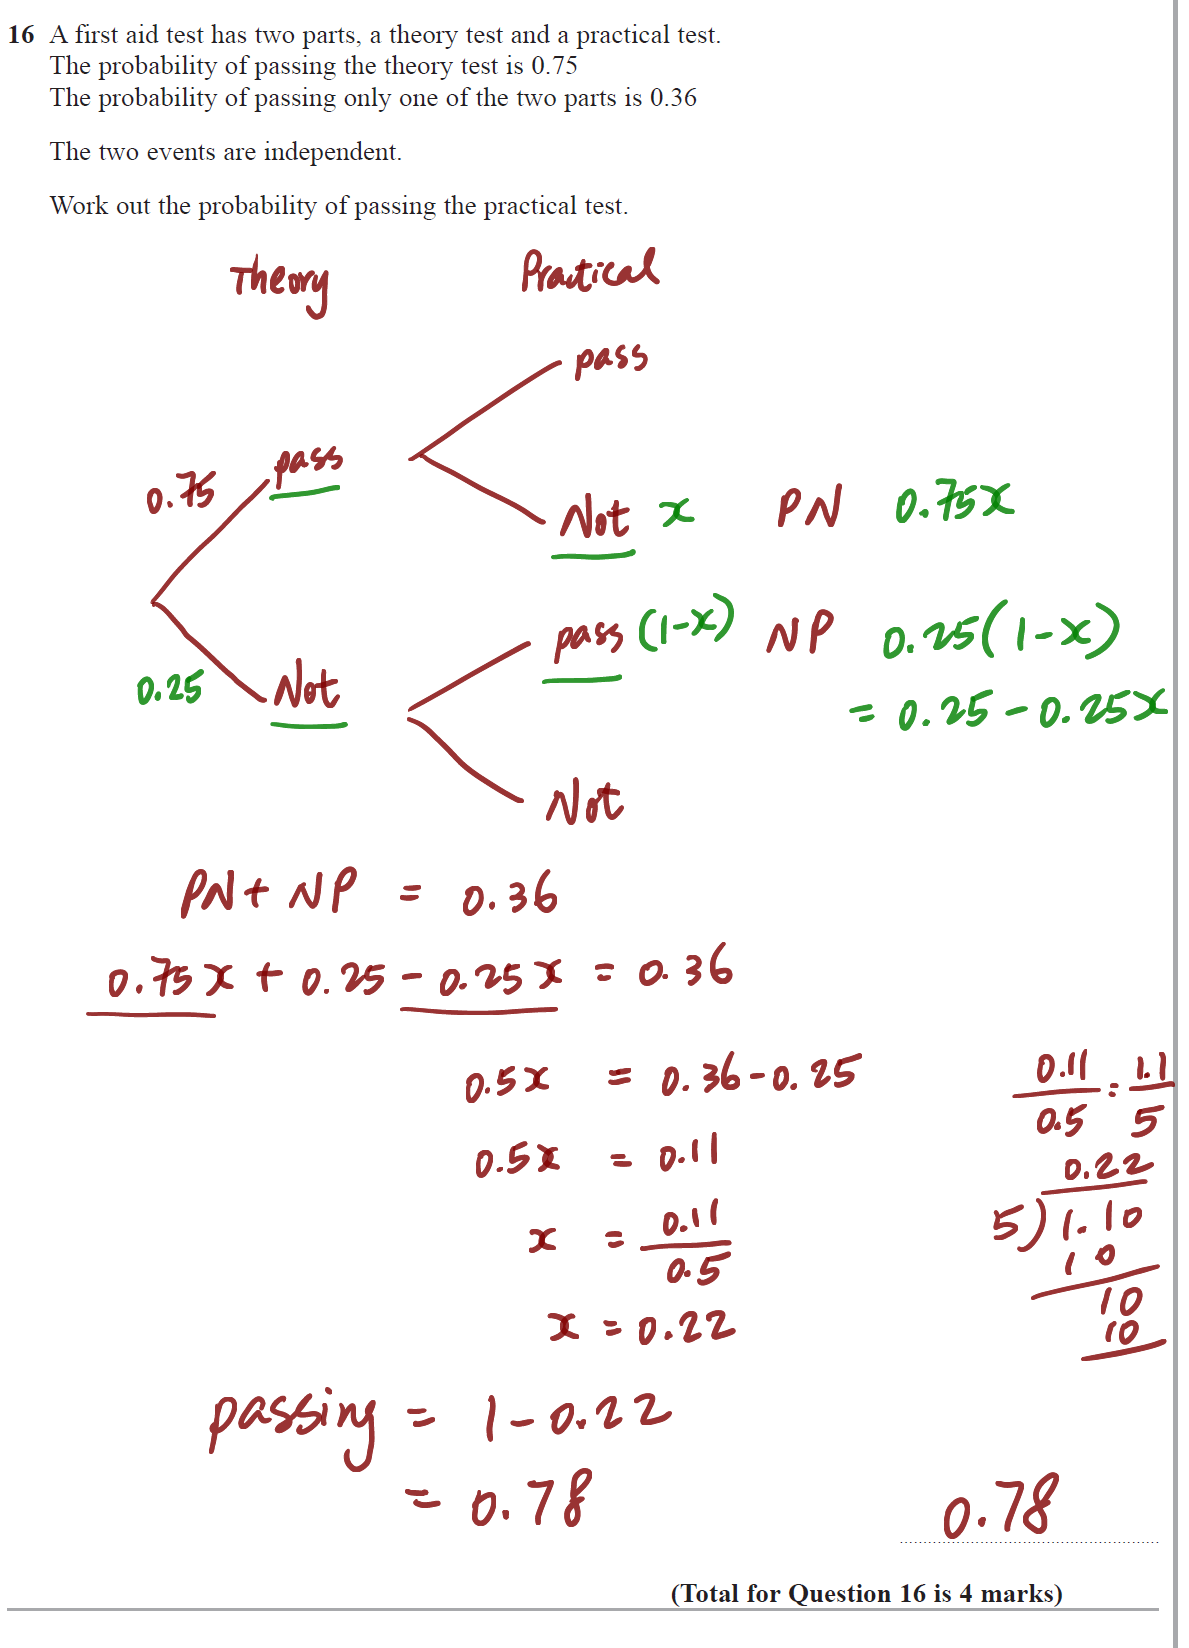 16 A first aid test has two parts, a theory test and a practical test.
The probability of passing the theory test is 0.75
The probability of passing only one of the two parts is 0.36
The two events are independent.
Work out the probability of passing the practical test.
Theory Practical
pass
0.75 pass
Not x PN 0.75x
pass (1-x) NP 0.25(1-x)
0.25 Not
= 0.25 - 0.25x
Not
PN + NP = 0.36
0.75x + 0.25 - 0.25x = 0.36
0.5x = 0.36 - 0.25
0.11/0.5 = 1.1/5
0.5x = 0.11
0.22
x = 0.11/0.5
5) 1.10
10
10
10
x = 0.22
passing = 1 - 0.22
= 0.78
0.78
(Total for Question 16 is 4 marks)